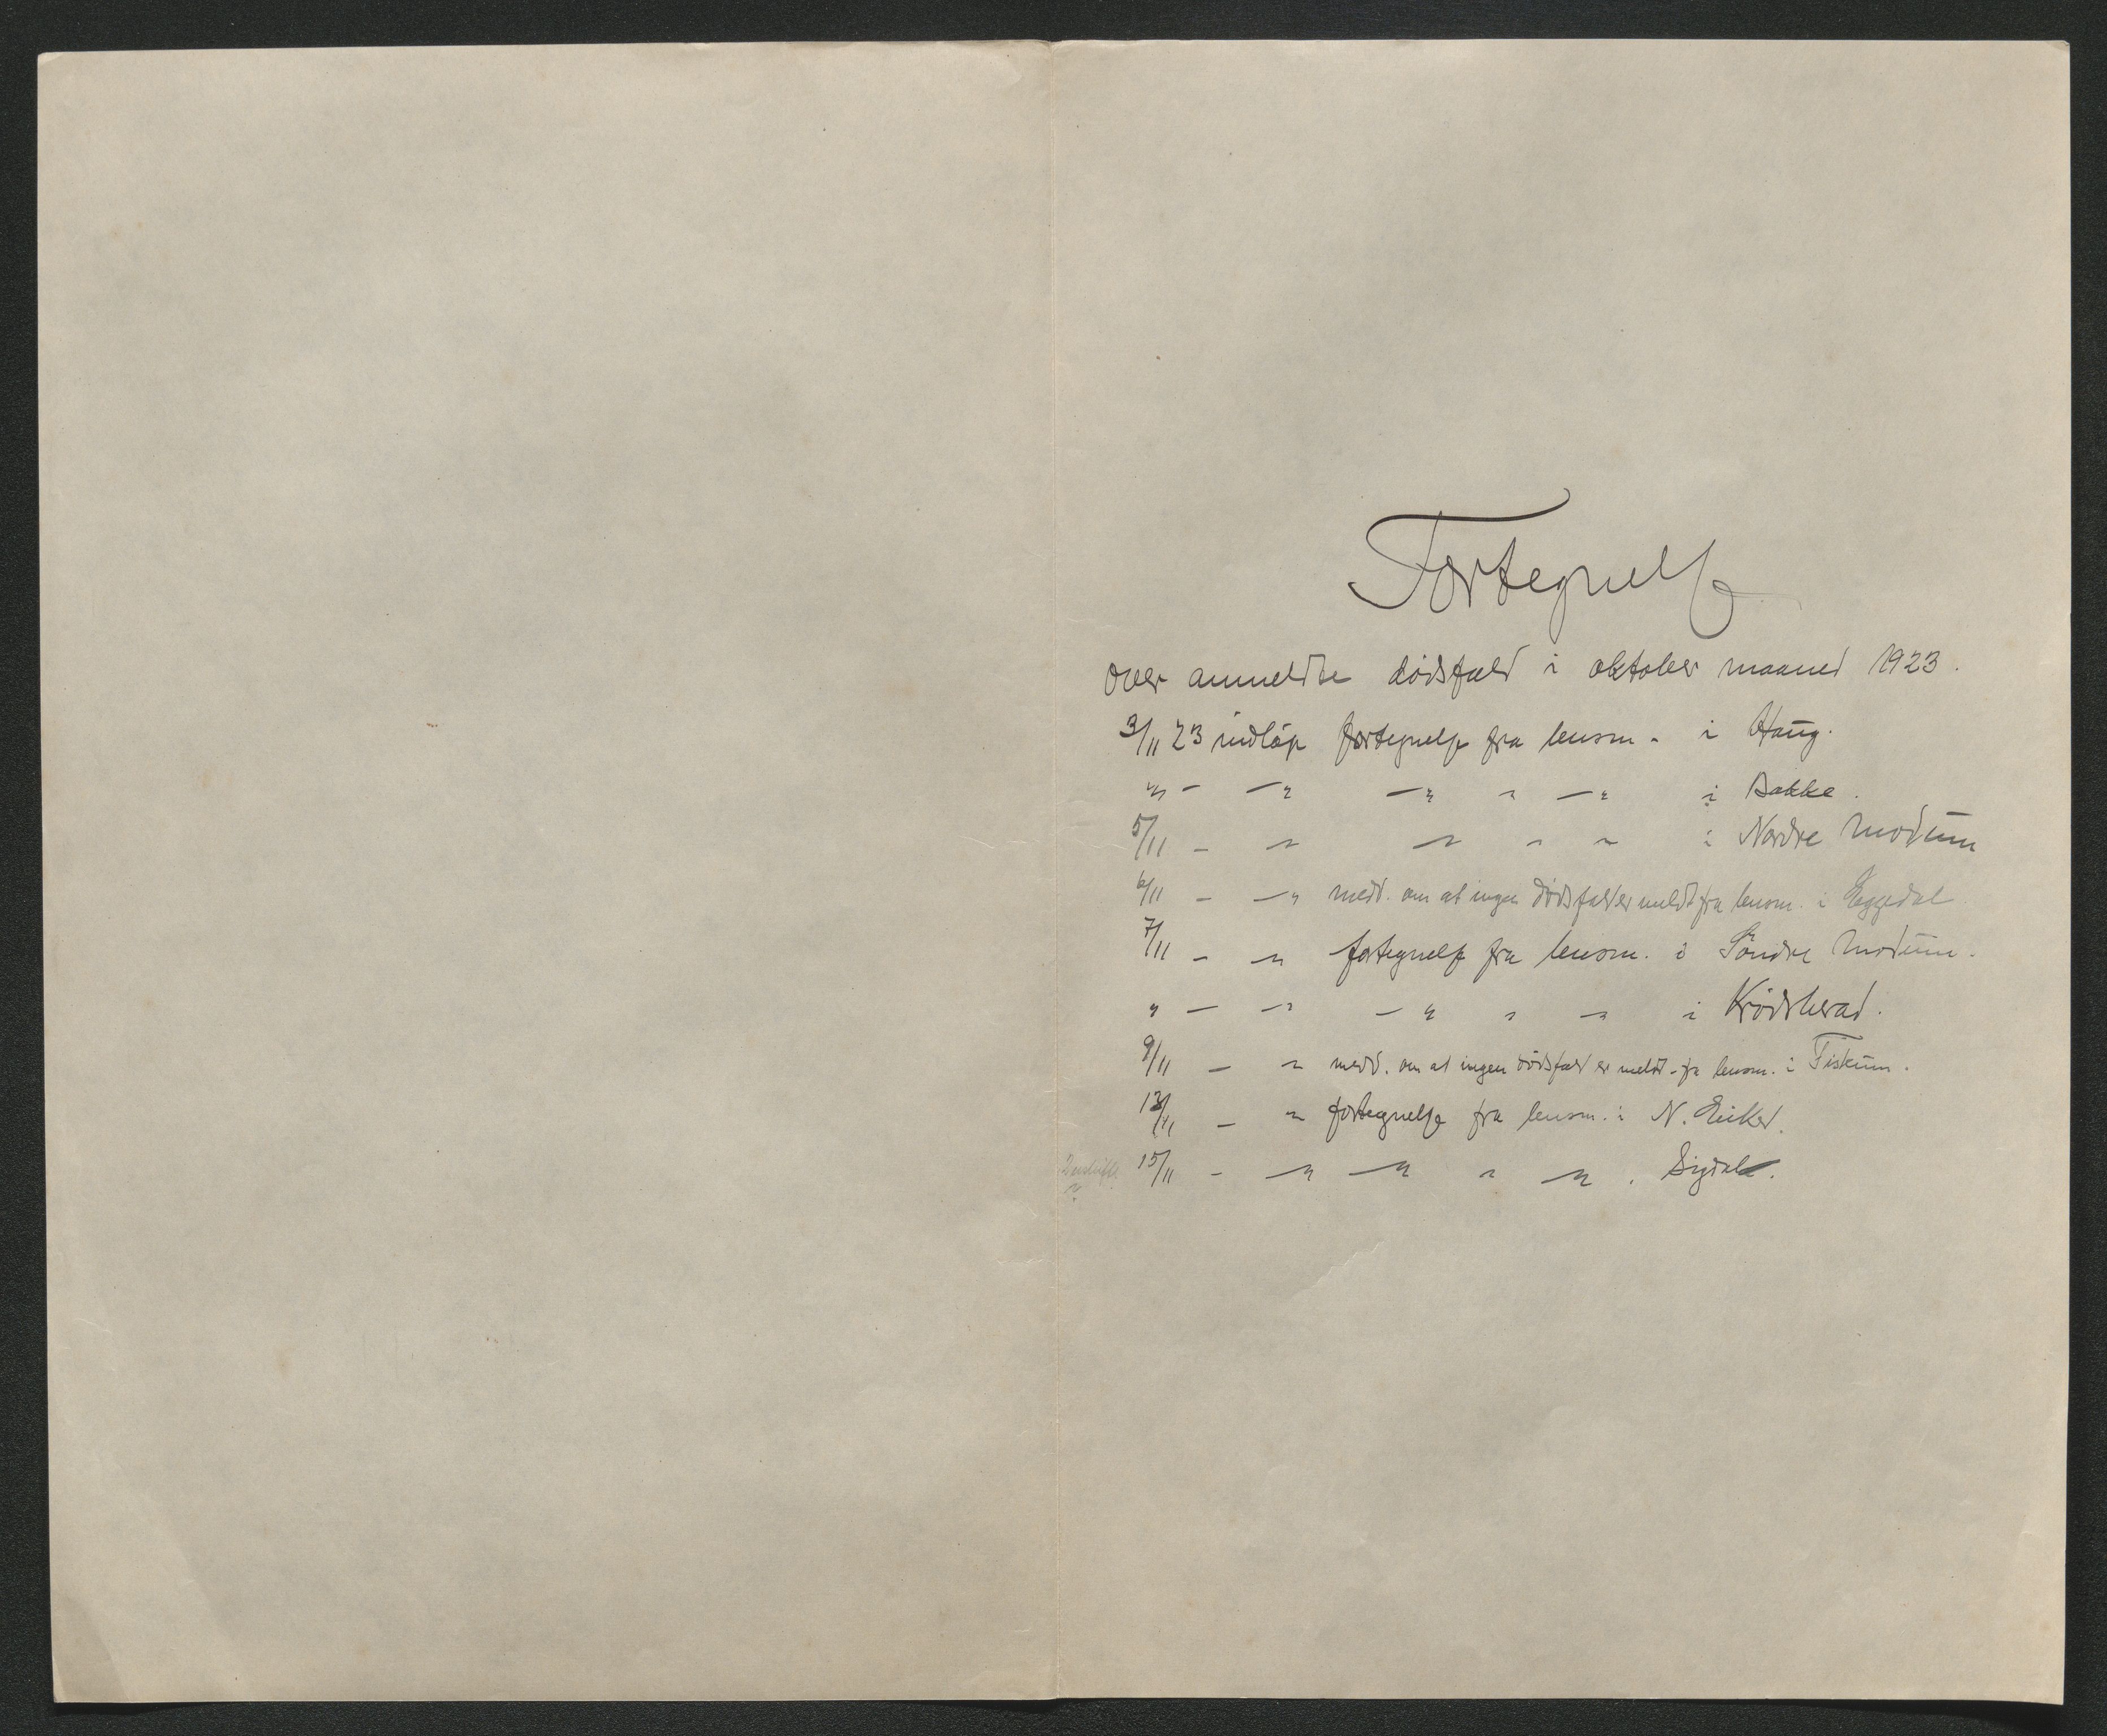 Fortegnelse
over anmeldte dödsfald i oktober maaned 1923.
3/11 23 indlöp fortegnelse fra lensm. i Haug.
" - - " - " " - " i Bakke.
5/11 - " " " " i Nordre Modum
6/11 - - " medd. om at ingen dödsfald er meldt fra lensm. i Eggedal
7/11 - " fortegnelse fra lensm. i Söndre Modum.
" - - " - " " - " i Krödsherad.
9/11 - " medd. om at ingen dödsfald er meldt fra lensm. i Fiskum.
13/11 - " fortegnelse fra lensm. i N. Eiker.
15/11 - - " - " " - " . Sigdal.